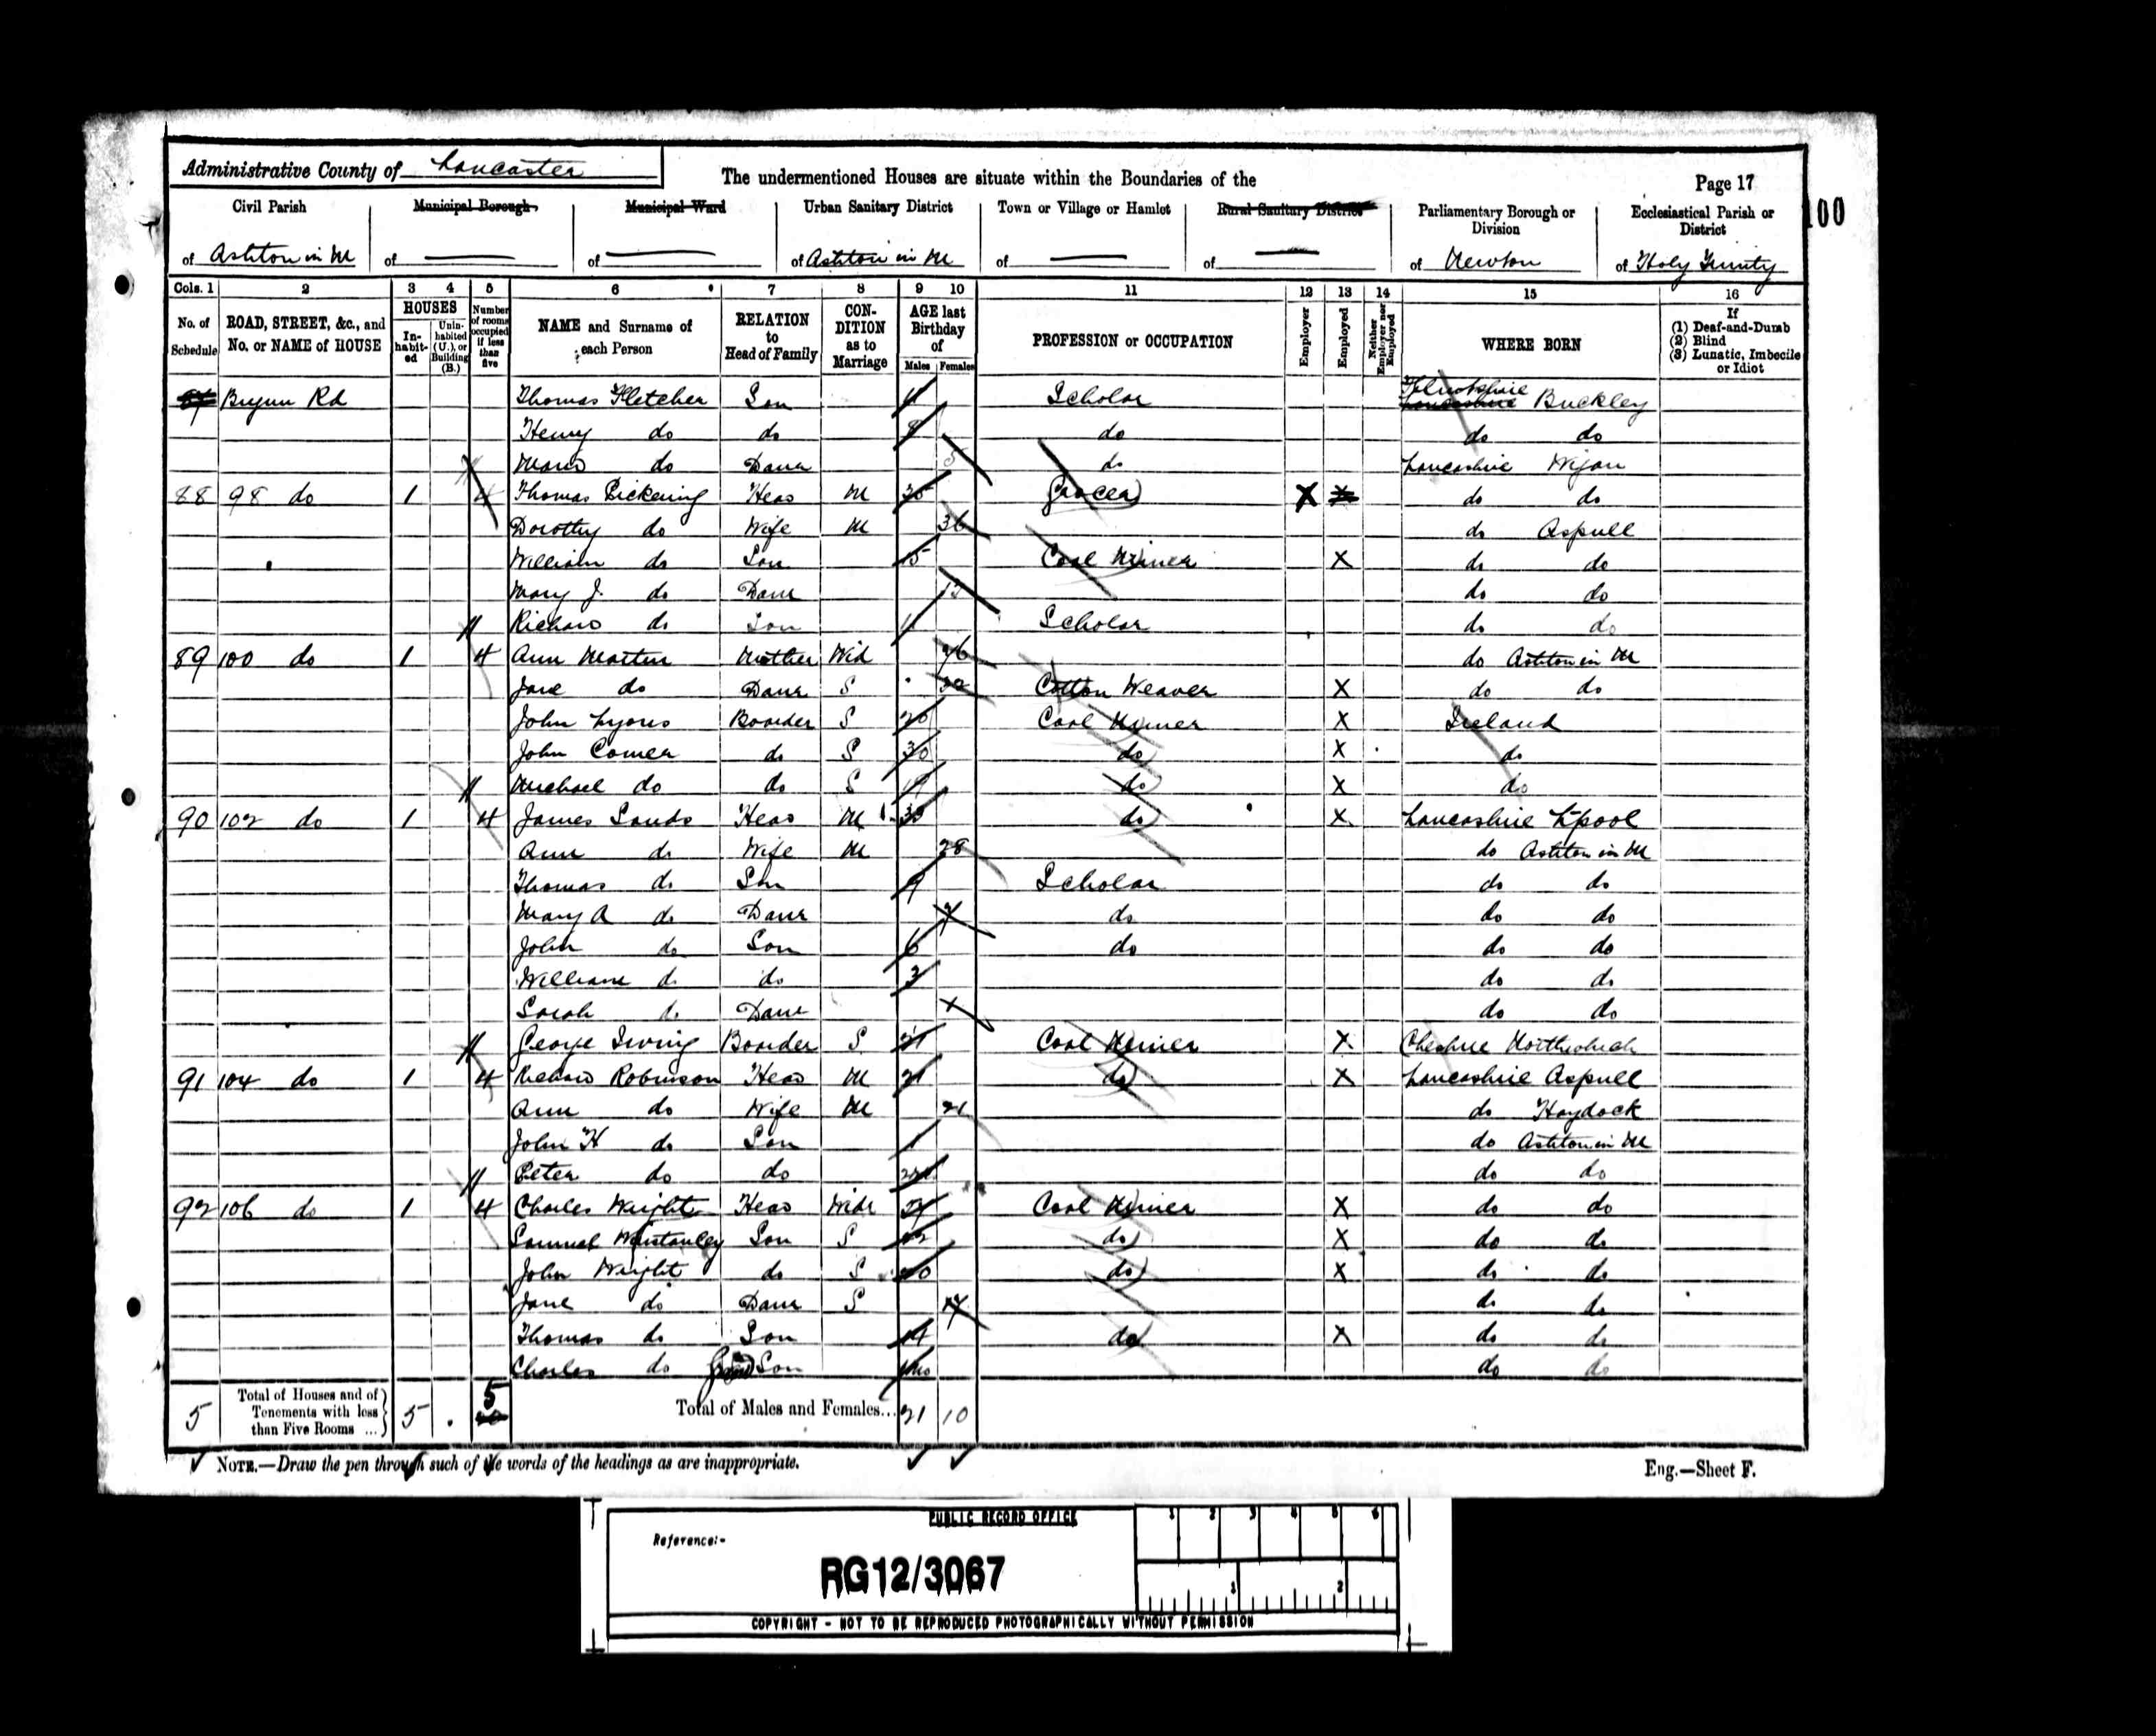 Administrative County of Lancaster
The undermentioned Houses are situate within the Boundaries of the
Page 17
100
Civil Parish of Ashton in M
Municipal Borough of
Municipal Ward of
Urban Sanitary District of Ashton in M
Town or Village or Hamlet of
Rural Sanitary District of
Parliamentary Borough or Division of Newton
Ecclesiastical Parish or District of Holy Trinity
Cols. 1 2 3 4 5 6 7 8 9 10 11 12 13 14 15 16
No. of Schedule
ROAD, STREET, &c., and No. or NAME of HOUSE
HOUSES
In-habit-ed
Unin-habited (U.), or Building (B.)
Number of rooms occupied if less than five
NAME and Surname of each Person
RELATION to Head of Family
CON-DITION as to Marriage
AGE last Birthday of
Males Females
PROFESSION or OCCUPATION
Employer
Employed
Neither Employer nor Employed
WHERE BORN
If (1) Deaf-and-Dumb (2) Blind (3) Lunatic, Imbecile or Idiot
87 Brynn Rd Thomas Fletcher Son 11 Scholar Flintshire Buckley
Henry do do 8 do do do
do Daur 5 do Lancashire Wigan
88 98 do 1 4 Thomas Pickering Head M Grocer X do do
Dorothy do Wife M 36 do Aspull
William do Son 15 Coal Miner X do do
Mary J. do Daur 13 do do
Richard do Son 11 Scholar do do
89 100 do 1 4 Ann Martin Mother Wid do Ashton in M
Jane do Daur S Cotton Weaver X do do
John Lyons Boarder S Coal Miner X Ireland
John Comer do S 30 do X do
Michael do do S 19 do X do
90 102 do 1 4 James Sands Head M do X Lancashire L'pool
Ann do Wife M 28 do Ashton in M
Thomas do Son 9 Scholar do do
Mary A do Daur 7 do do do
John do Son 6 do do do
William do do 3 do do
Sarah do Daur do do
George Irving Boarder S 21 Coal Miner X Cheshire Northwich
91 104 do 1 4 Richard Robinson Head M 21 do X Lancashire Aspull
Ann do Wife M 21 do Haydock
John H do Son 1 do Ashton in M
Peter do do do do
92 106 do 1 4 Charles Wright Head Widr Coal Miner X do do
Samuel Winstanley Son S do X do do
John Wright do S do X do do
Jane do Daur S do do
Thomas do Son 14 do X do do
Charles do Grand Son do do
5 Total of Houses and of Tenements with less than Five Rooms ... 5 5 Total of Males and Females... 21 10
NOTE.—Draw the pen through such of the words of the headings as are inappropriate.
Eng.—Sheet F.
PUBLIC RECORD OFFICE
1 2 3 4 5 6
Reference:-
RG12/3067
1 2
COPYRIGHT - NOT TO BE REPRODUCED PHOTOGRAPHICALLY WITHOUT PERMISSION